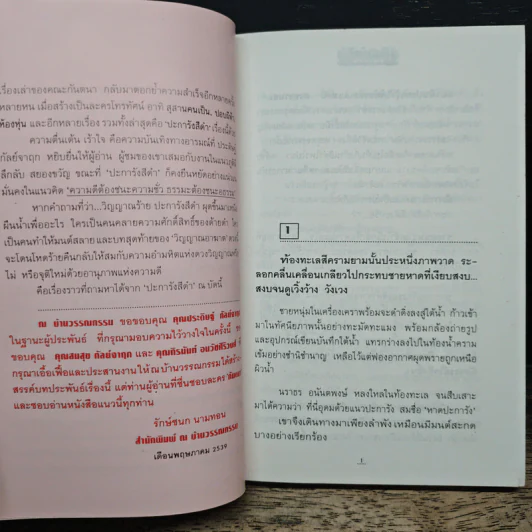 เรื่องเล่าของคณะกันตนา กลับมาตอกย้ำความสำเร็จอีกหลาย
หลายหน เมื่อสร้างเป็นละครโทรทัศน์ อาทิ สุสานคนเป็น,
ห้องหุ่น และอีกหลายเรื่อง รวมทั้งล่าสุดคือ 'ปะการังสีดำ' เรื่องนี้
ความตื่นเต้น เร้าใจ คือความบันเทิงทางอารมณ์ที่
กัลย์จาฤก หยิบยื่นให้ผู้อ่าน ผู้ชมของเขาเสมอกับงานในแนว
ลึกลับ สยองขวัญ ขณะที่ 'ปะการังสีดำ' ก็คงยืนหยัดอย่าง
มั่นคงในแนวคิด 'ความดีต้องชนะความชั่ว ธรรมะต้องชนะอธรรม'
หากคำถามที่ว่า...วิญญาณร้าย ปะการังสีดำ ผุดขึ้นมา
ผืนน้ำเพื่ออะไร ใครเป็นคนคลายความศักดิ์สิทธิ์ของด้ายดำ
เป็นคนทำให้มนต์สลาย และบทสุดท้ายของ 'วิญญาณอาฆาต'
จะโดนไหดร้ายคืนกลับให้สมกับความอำมหิตแห่งดวงวิญญาณ
ไม่ หรือจุติใหม่ด้วยอานุภาพแห่งความดี
คือเรื่องราวที่ถามหาได้จาก 'ปะการังสีดำ' ณ บัดนี้
ณ บ้านวรรณกรรม ขอขอบคุณ คุณประดิษฐ์ กัลย์จาฤก
ในฐานะผู้ประพันธ์ ที่กรุณามอบความไว้วางใจในครั้งนี้
ขอบคุณ คุณสมสุข กัลย์จาฤก และ คุณทิรนันท์ อนวัชศิริวงศ์
กรุณาเอื้อเฟื้อและประสานงานให้ ณ บ้านวรรณกรรมได้
สรรค์บทประพันธ์เรื่องนี้ แด่ท่านผู้อ่านที่ชื่นชอบละคร
และชอบอ่านหนังสือแนวนี้ทุกท่าน
รักษ์ชนก นามทอน
สำนักพิมพ์ ณ บ้านวรรณกรรม
เดือนพฤษภาคม 2539
1
ท้องทะเลสีครามยามนั้นประหนึ่งภาพวาด ระ-
ลอกคลื่นเคลื่อนเกลียวไปกระทบชายหาดที่เงียบสงบ...
สงบจนดูเวิ้งว้าง วังเวง
ชายหนุ่มในเครื่องเคราพร้อมจะดำดิ่งลงสู่ใต้น้ำ ก้าวเข้า
มาในทัศนียภาพนั้นอย่างทะมัดทะแมง พร้อมกล้องถ่ายรูป
และอุปกรณ์เขียนบันทึกใต้น้ำ แทรกร่างลงไปในท้องน้ำคราม
เข้มอย่างชำนิชำนาญ เหลือไว้แต่ฟองอากาศผุดพรายถูกเหนือ
ผิวน้ำ
นราธร อนันตพงษ์ หลงใหลในท้องทะเล จนสืบเสาะ
มาได้ความว่า ที่นี่อุดมด้วยแนวปะการัง สมชื่อ 'หาดปะการัง'
เขาจึงเดินทางมาเพียงลำพัง เหมือนมีมนต์สะกด
บางอย่างเรียกร้อง
1